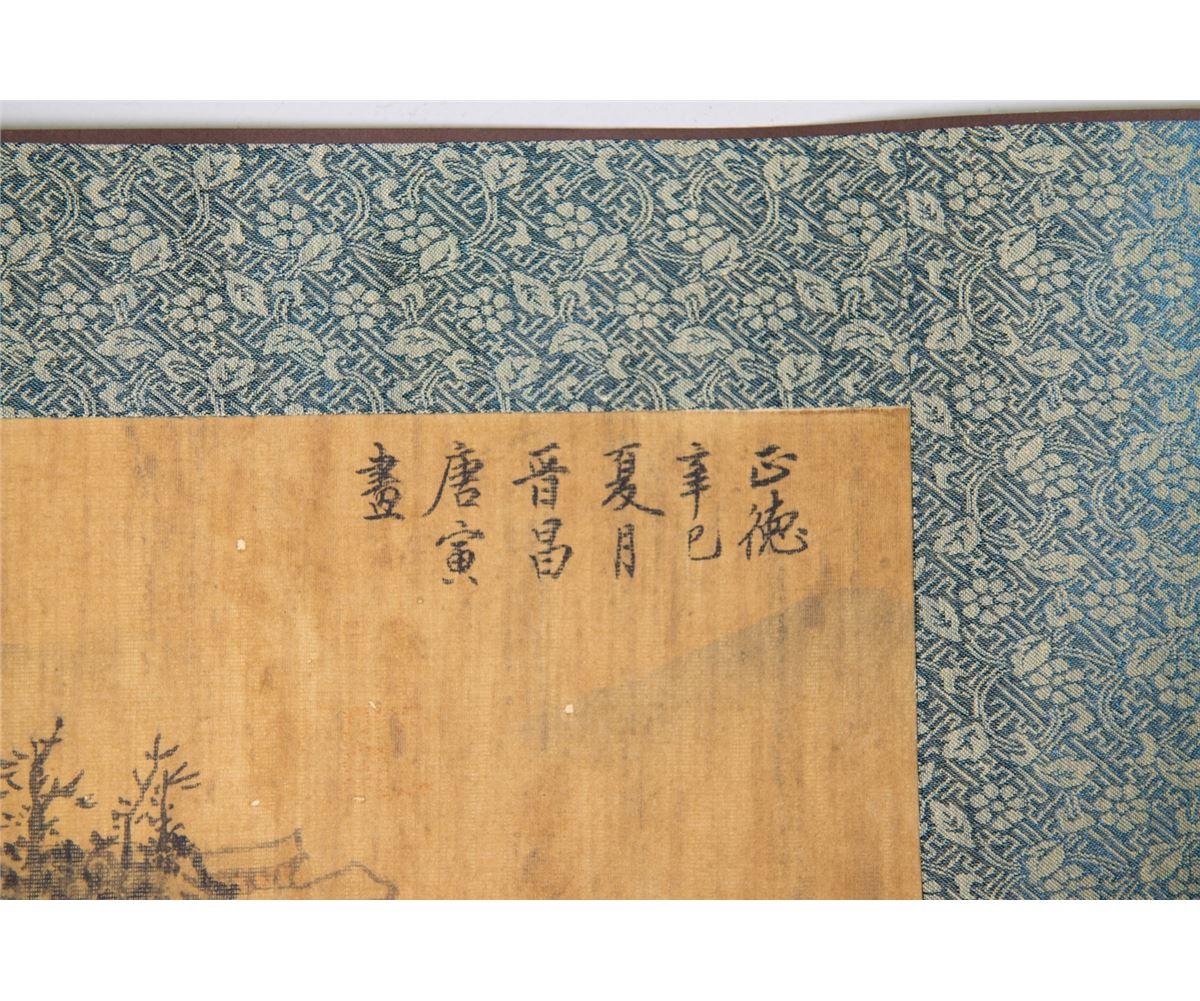 正徳
辛巳
夏月
晉昌
唐寅
畫